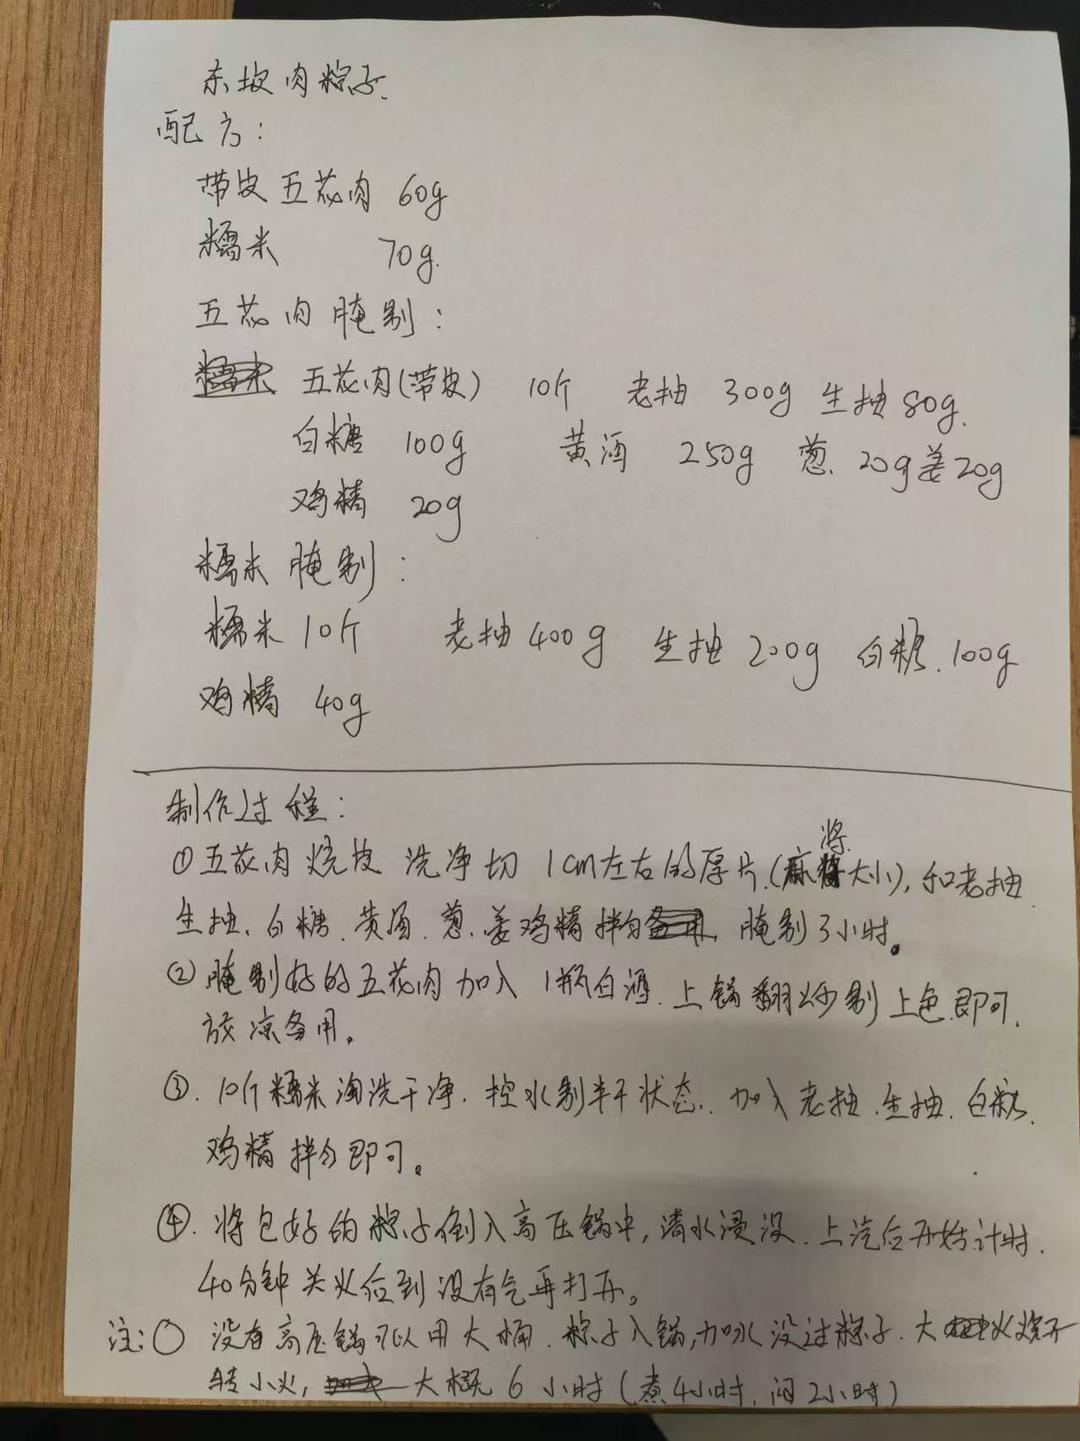 东坡肉粽子.
配方:
带皮五花肉 60g
糯米 70g.
五花肉腌制:
五花肉(带皮) 10斤 老抽 300g 生抽 80g.
白糖 100g 黄酒 250g 葱. 20g 姜20g
鸡精 20g
糯米腌制:
糯米10斤 老抽400g 生抽 200g 白糖.100g
鸡精 40g
制作过程:
将
①五花肉烧皮 洗净切 1cm左右的厚片.(麻大小), 和老抽
生抽.白糖.黄酒.葱.姜鸡精拌匀 腌制3小时。
②腌制好的五花肉加入 1瓶白酒.上锅翻炒制上色即可.
放凉备用。
③. 10斤糯米淘洗干净.控水制半干状态.加入老抽.生抽.白糖.
鸡精拌匀即可。
④.将包好的粽子倒入高压锅中,清水浸没.上汽后开始计时.
40分钟关火后到没有气再打开。
注:① 没有高压锅可以用大桶.粽子入锅,加水没过粽子.大火烧开
转小火, 大概6小时(煮4小时.闷2小时)